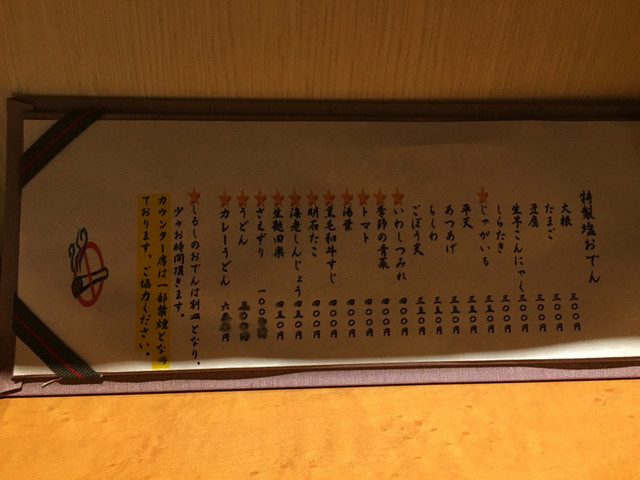 特製塩おでん
大根 三〇〇円
たまご 三〇〇円
豆腐 三〇〇円
生芋こんにゃく 三〇〇円
しらたき 三〇〇円
★じゃがいも 三五〇円
平天 三五〇円
あつあげ 三五〇円
ちくわ 三五〇円
ごぼう天 三五〇円
★いわしつみれ 四〇〇円
★季節の青菜 四〇〇円
★トマト 四〇〇円
★湯葉 四〇〇円
★黒毛和牛すじ 四〇〇円
★明石たこ 四〇〇円
★海老しんじょう 四五〇円
★生麩田楽 四五〇円
★さえずり 一〇〇円
★うどん 円
★カレーうどん 六 円
★しるしのおでんは別皿となり、
少々お時間頂きます。
カウンター席は一部禁煙となっ
ております。ご協力ください。